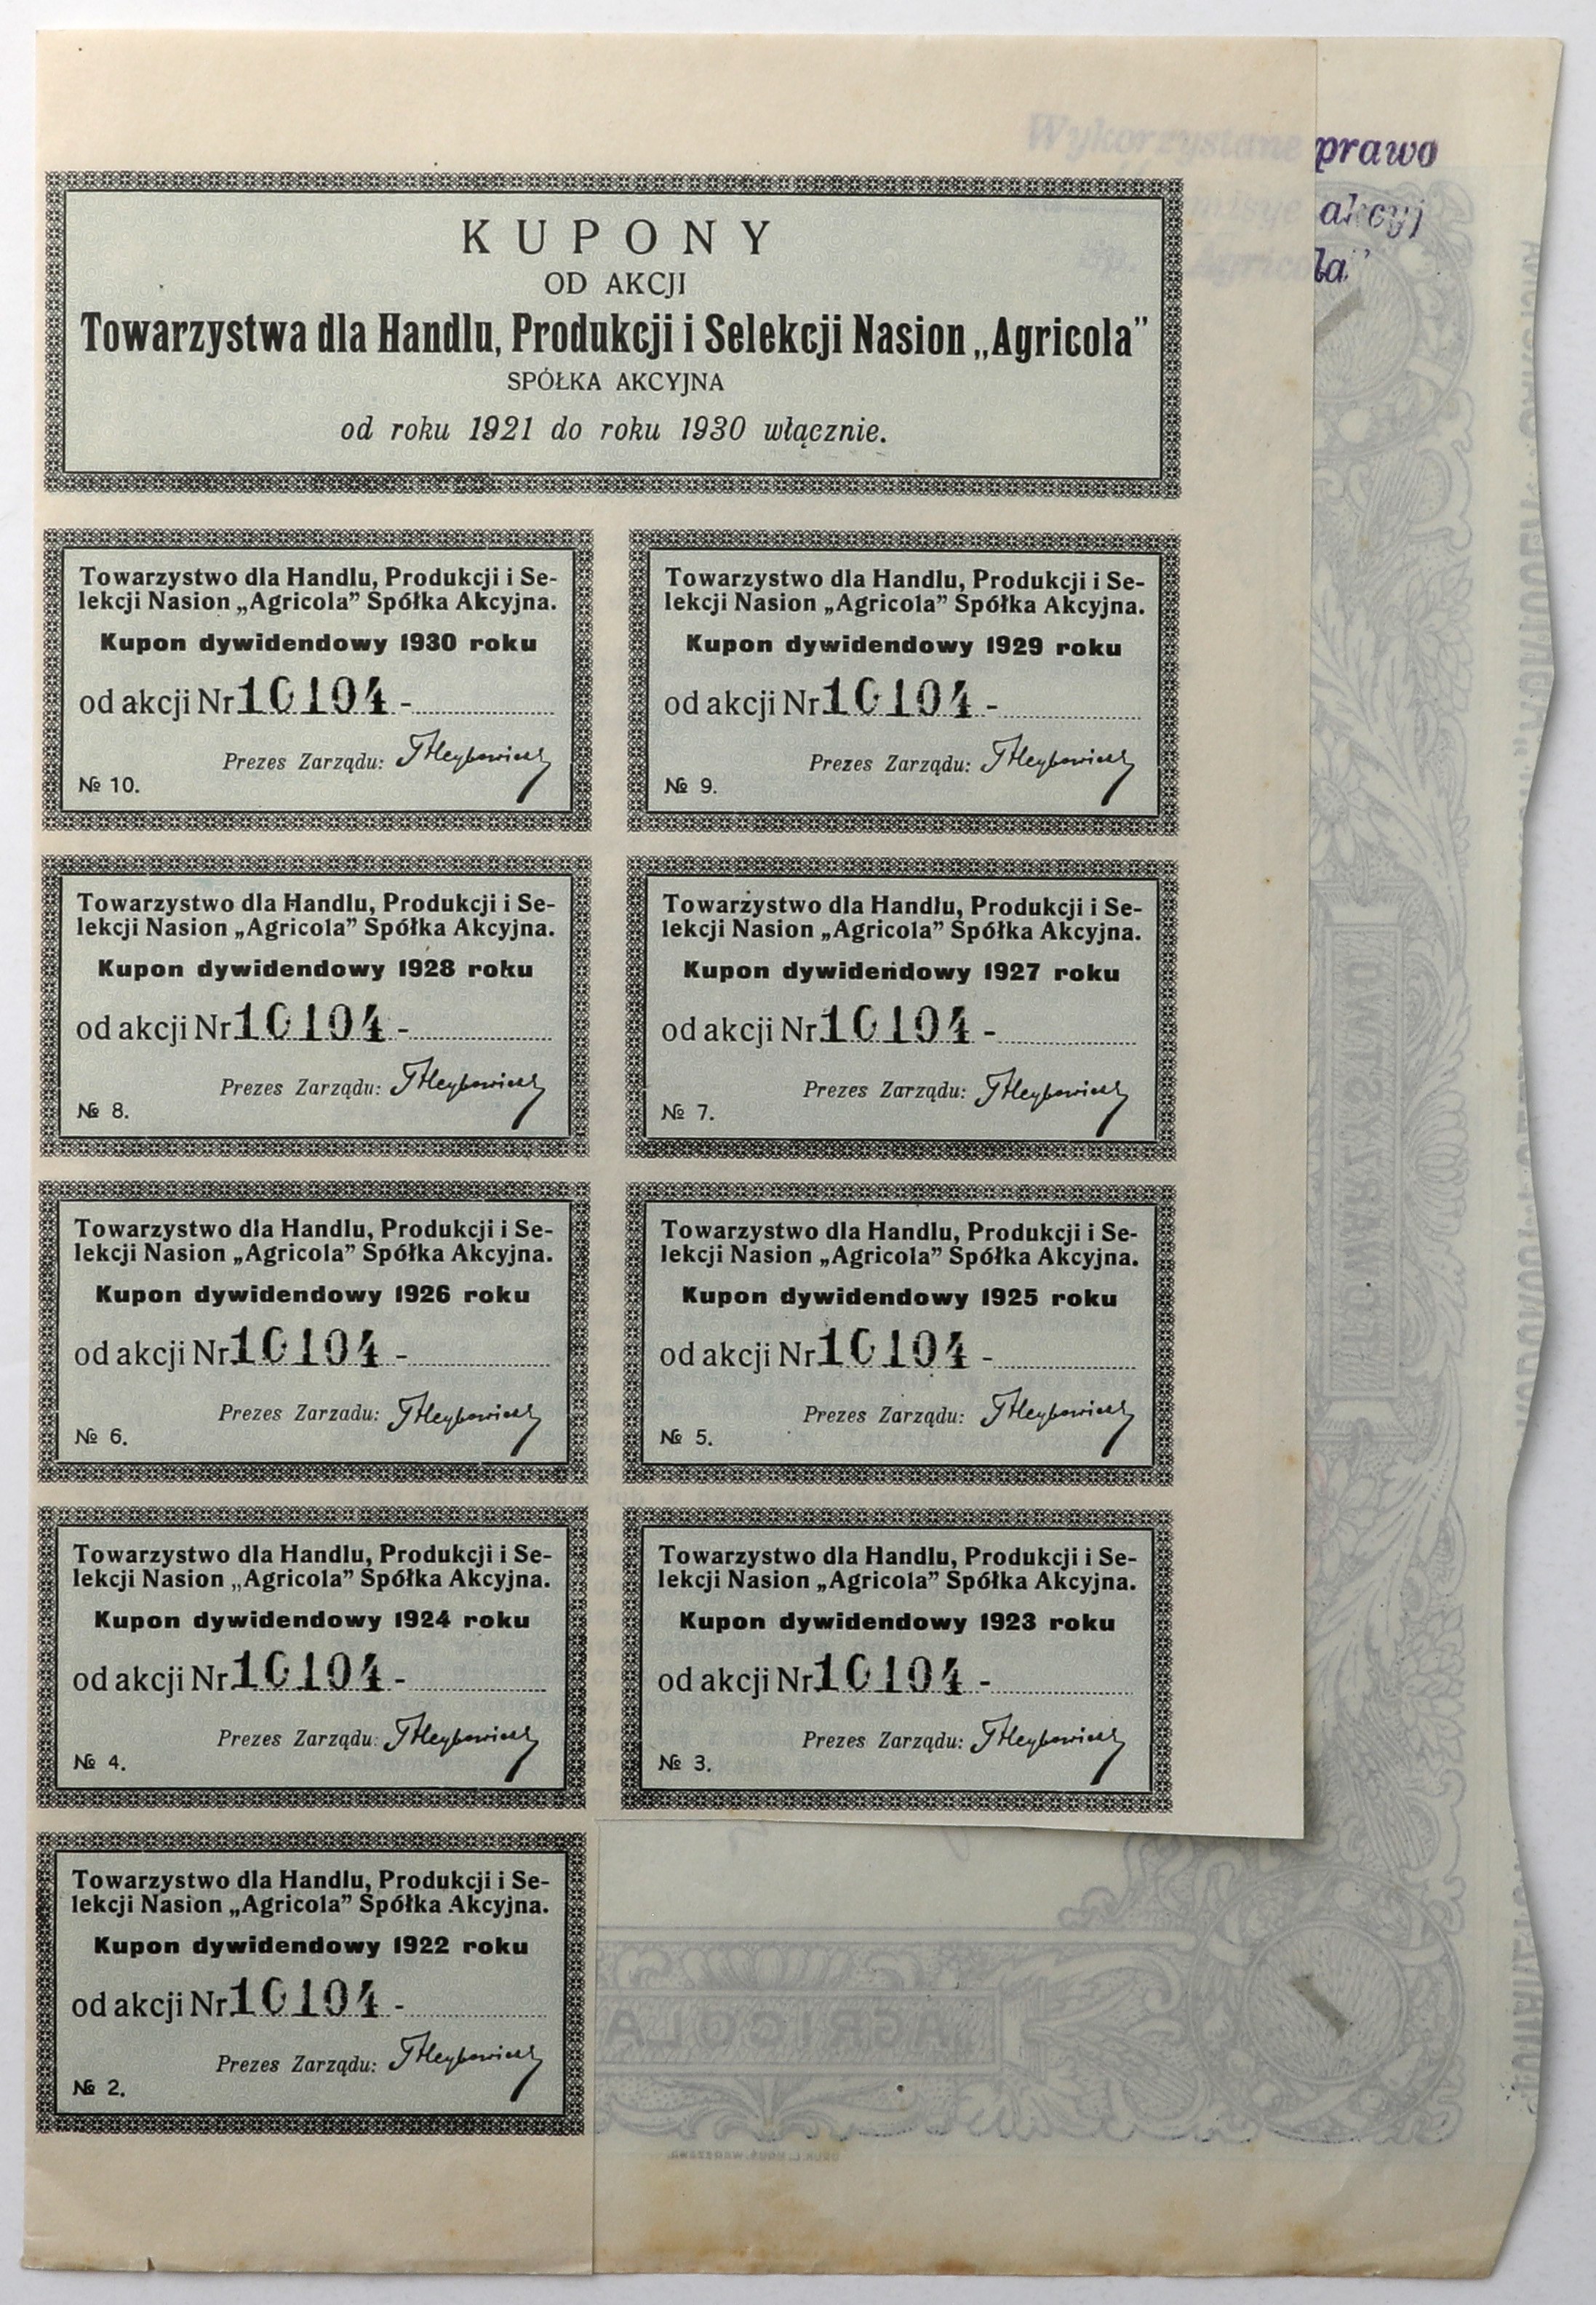 Wykorzystane prawo
akcyj
KUPONY
OD AKCJI
Towarzystwa dla Handlu, Produkcji i Selekcji Nasion „Agricola”
SPÓŁKA AKCYJNA
od roku 1921 do roku 1930 włącznie.
Towarzystwo dla Handlu, Produkcji i Se-
lekcji Nasion „Agricola” Spółka Akcyjna.
Kupon dywidendowy 1930 roku
od akcji Nr 10104 -
Prezes Zarządu:
№ 10.
Towarzystwo dla Handlu, Produkcji i Se-
lekcji Nasion „Agricola” Spółka Akcyjna.
Kupon dywidendowy 1929 roku
od akcji Nr 10104 -
Prezes Zarządu:
№ 9.
Towarzystwo dla Handlu, Produkcji i Se-
lekcji Nasion „Agricola” Spółka Akcyjna.
Kupon dywidendowy 1928 roku
od akcji Nr 10104 -
Prezes Zarządu:
№ 8.
Towarzystwo dla Handlu, Produkcji i Se-
lekcji Nasion „Agricola” Spółka Akcyjna.
Kupon dywidendowy 1927 roku
od akcji Nr 10104 -
Prezes Zarządu:
№ 7.
Towarzystwo dla Handlu, Produkcji i Se-
lekcji Nasion „Agricola” Spółka Akcyjna.
Kupon dywidendowy 1926 roku
od akcji Nr 10104 -
Prezes Zarzadu:
№ 6.
Towarzystwo dla Handlu, Produkcji i Se-
lekcji Nasion „Agricola” Spółka Akcyjna.
Kupon dywidendowy 1925 roku
od akcji Nr 10104 -
Prezes Zarządu:
№ 5.
Towarzystwo dla Handlu, Produkcji i Se-
lekcji Nasion „Agricola” Spółka Akcyjna.
Kupon dywidendowy 1924 roku
od akcji Nr 10104 -
Prezes Zarządu:
№ 4.
Towarzystwo dla Handlu, Produkcji i Se-
lekcji Nasion „Agricola” Spółka Akcyjna.
Kupon dywidendowy 1923 roku
od akcji Nr 10104 -
Prezes Zarządu:
№ 3.
Towarzystwo dla Handlu, Produkcji i Se-
lekcji Nasion „Agricola” Spółka Akcyjna.
Kupon dywidendowy 1922 roku
od akcji Nr 10104 -
Prezes Zarządu:
№ 2.
TOWARZYSTWO
AGRICOLA